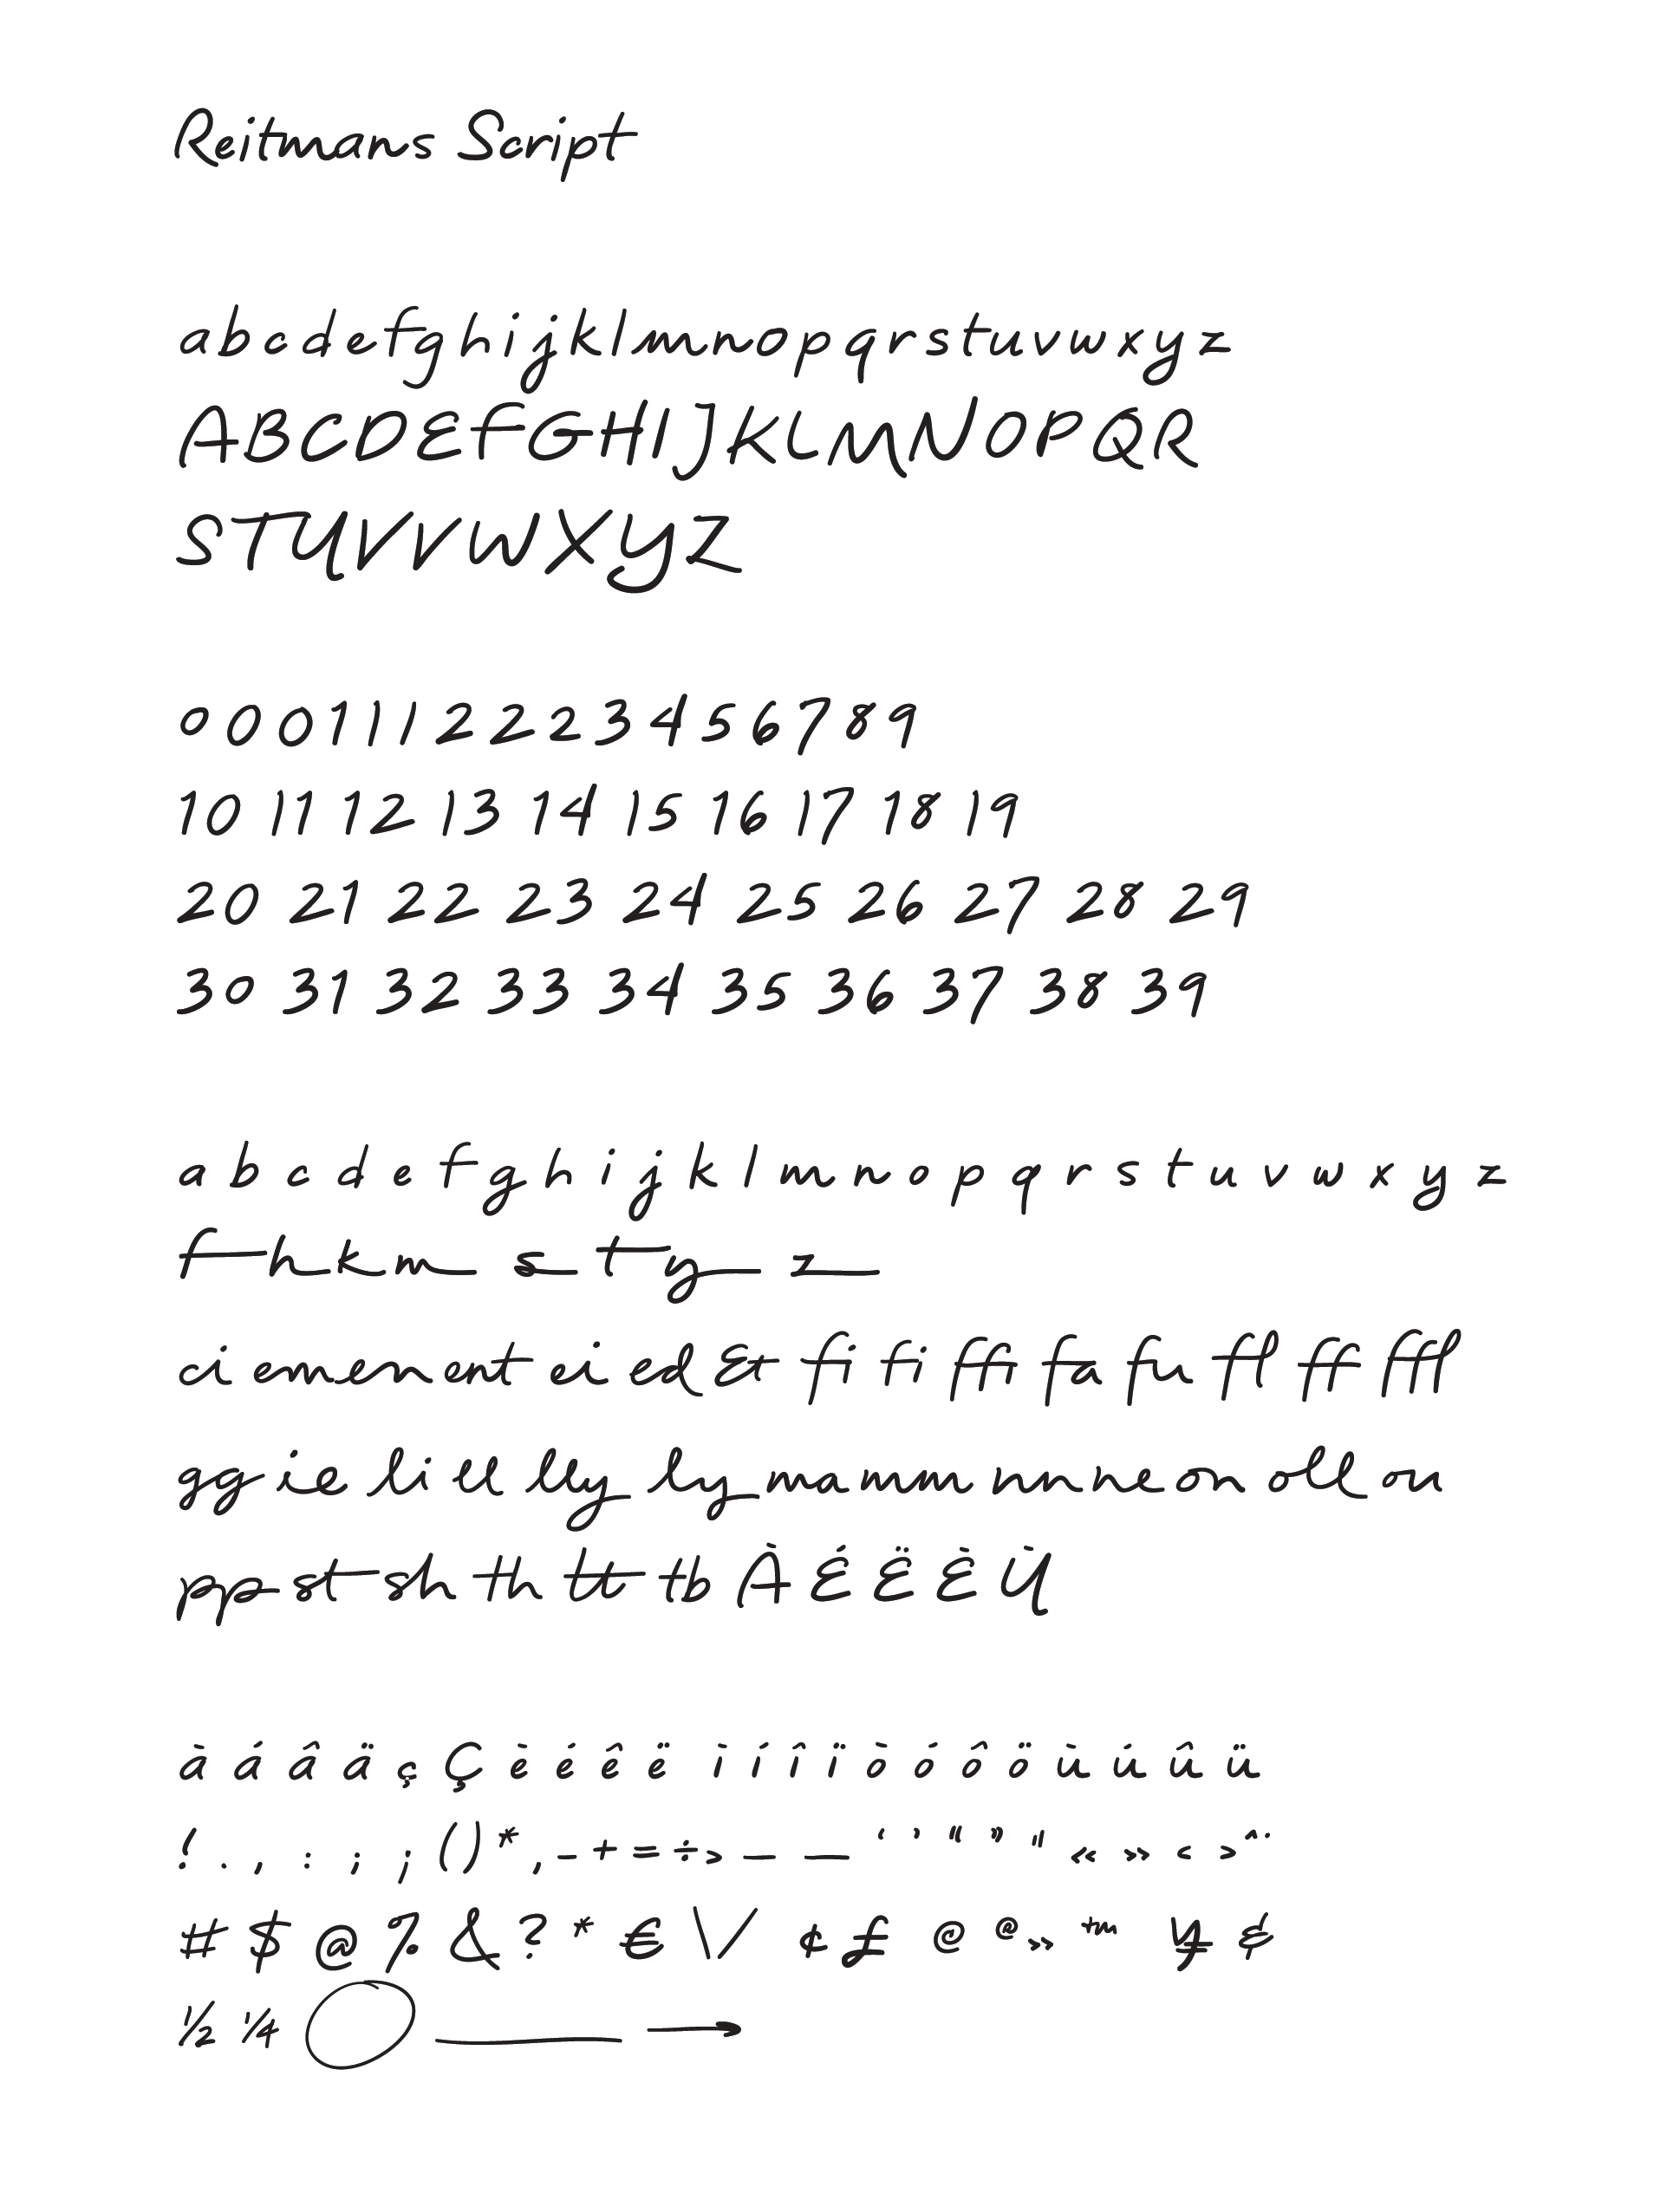 Reitmans Script
abcdefghijklmnopqrstuvwxyz
ABCDEFGHIJKLMNOPQR
STUVVWXYZ
0 0 0 1 1 1 2 2 2 3 4 5 6 7 8 9
10 11 12 13 14 15 16 17 18 19
20 21 22 23 24 25 26 27 28 29
30 31 32 33 34 35 36 37 38 39
a b c d e f g h i j k l m n o p q r s t u v w x y z
f h k m s t y z
ci em en ent ei ed Et fi fi ffi fa fu fl ff ffl
gg ie li ll lly ly ma mm nn ne on oll ou
pp st sh th tt tb À É Ë È Ù
à á â ä ç Ç è é ê ë ì í î ï ò ó ô ö ù ú û ü
! . , : ; ; ( ) * , - + = ÷ > – — ‘ ’ “ ” " « » ‹ › ^ ·
# $ @ % & ? * € \ / ¢ £ @ @ » ™ ¥ ¢
½ ¼ ◯ — →